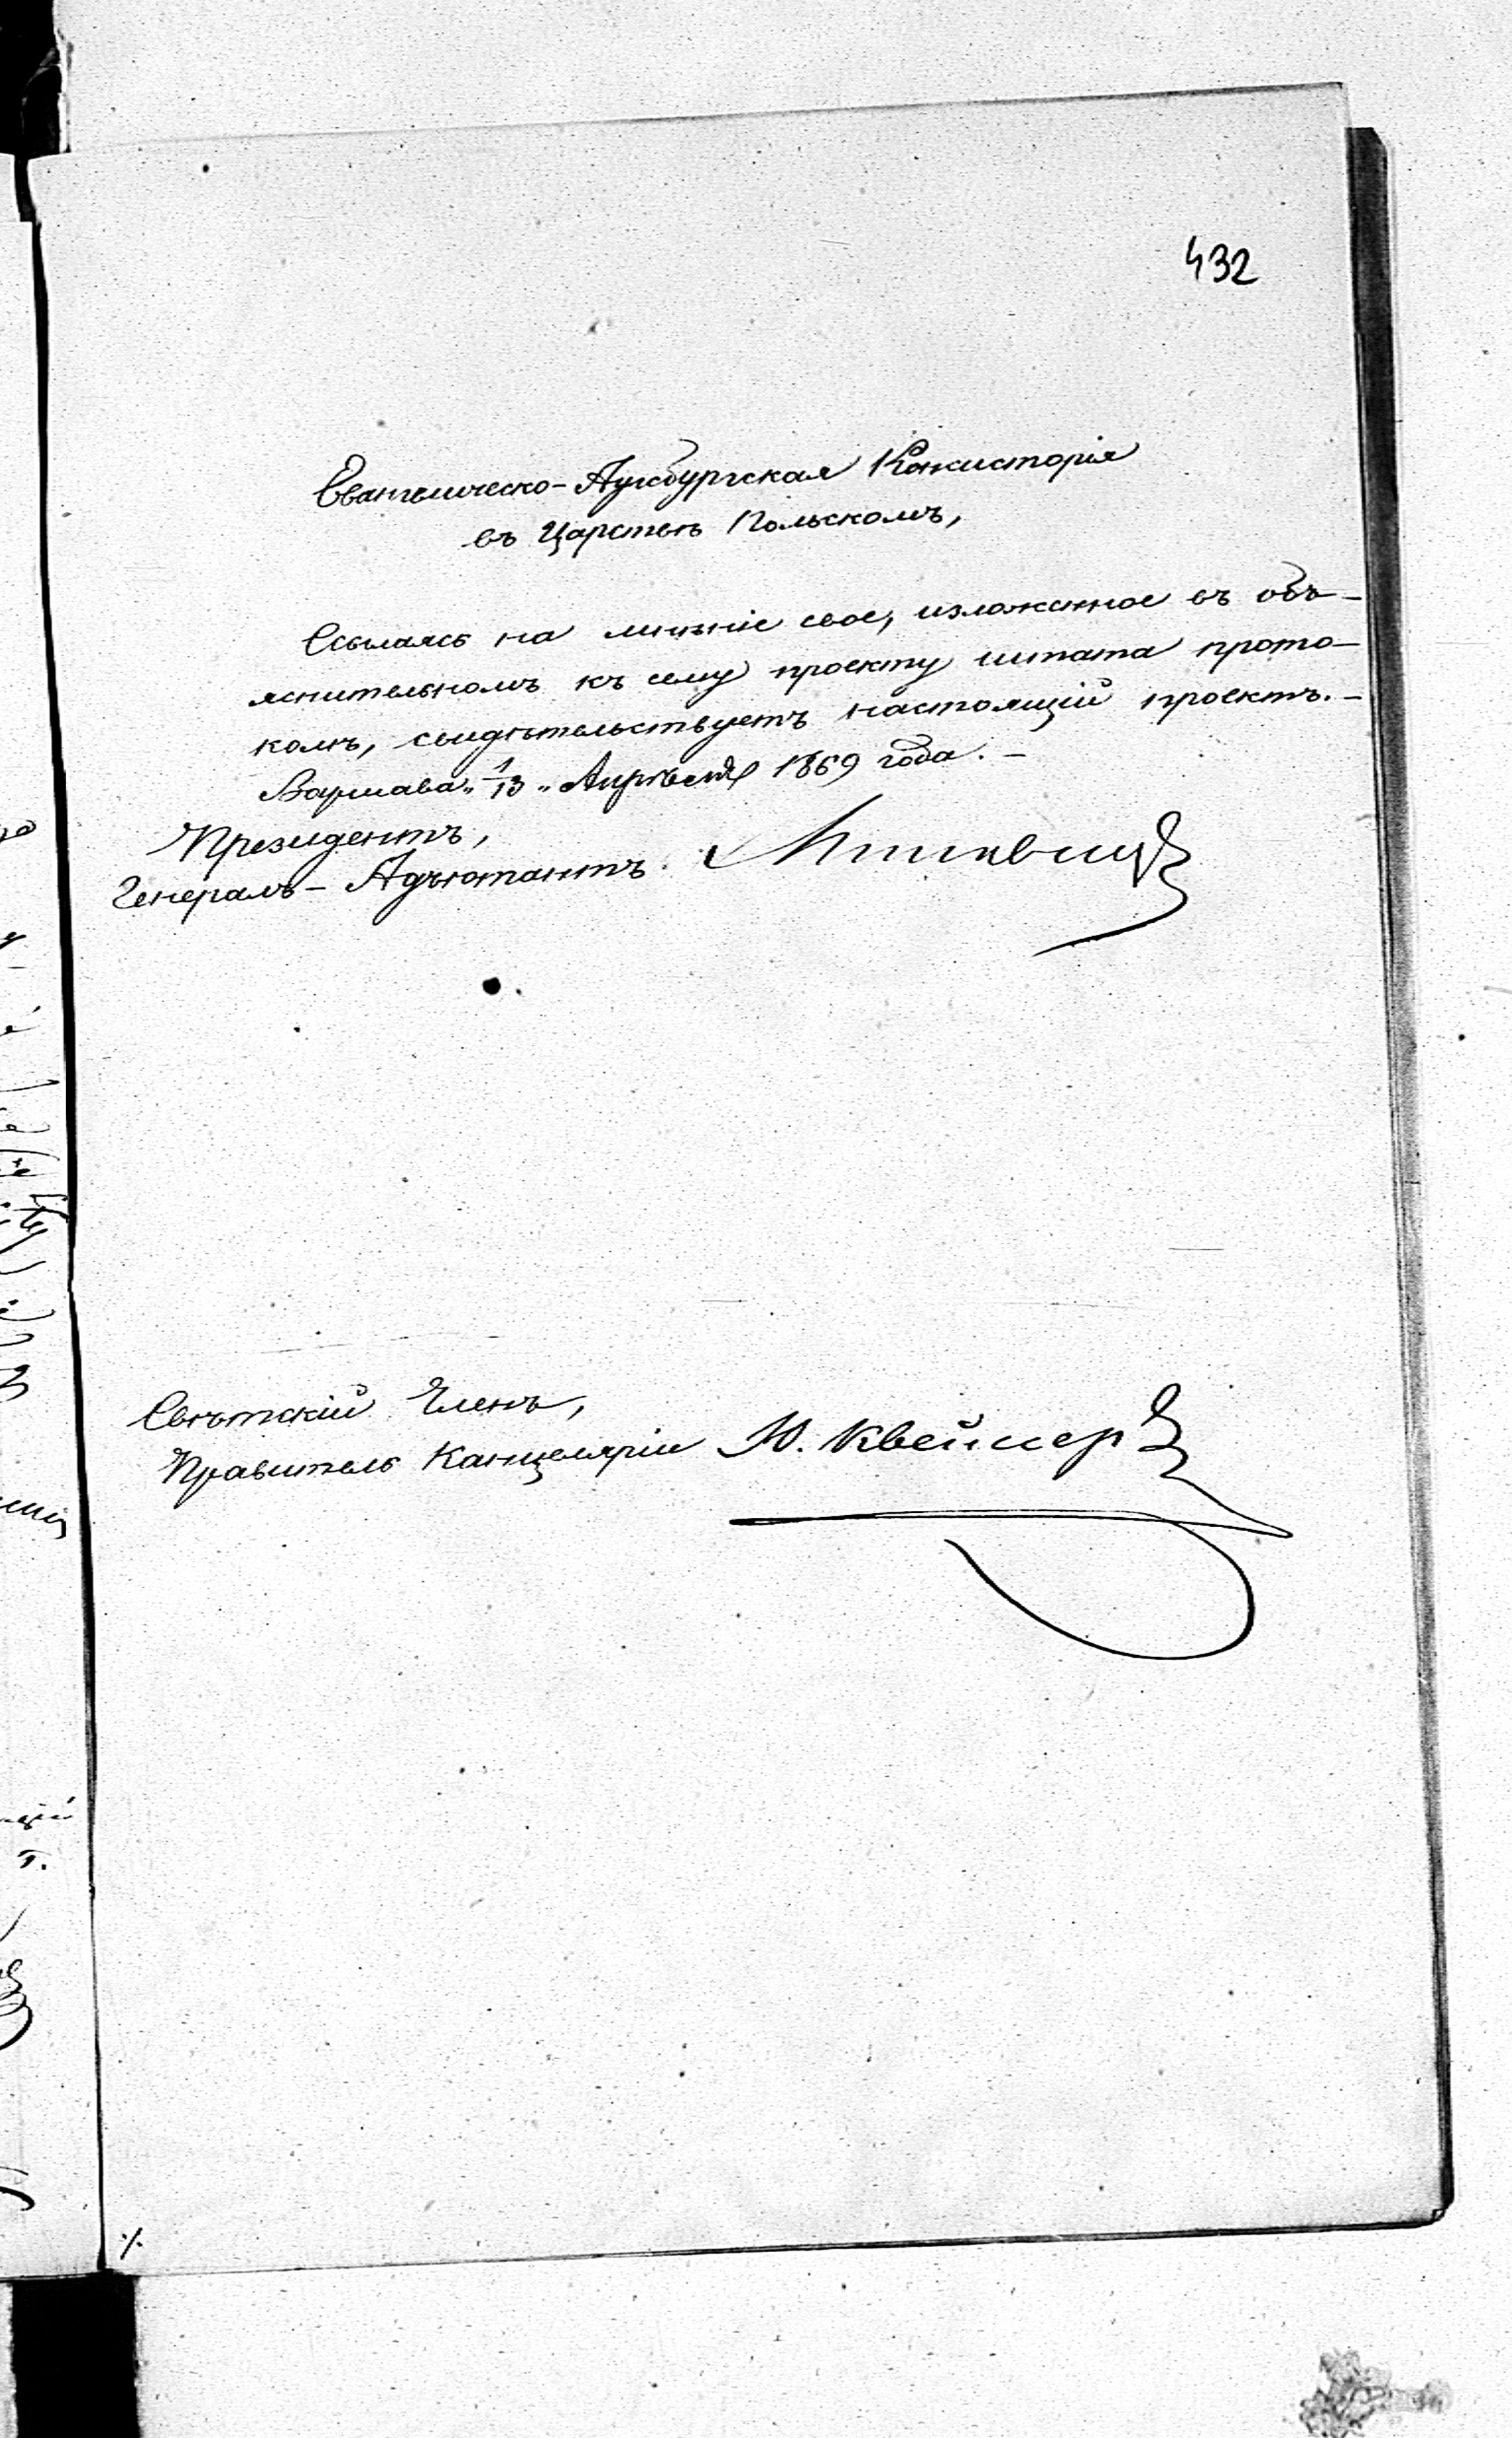 432
Евангелическо-Аугсбургская Консисторія
въ Царствѣ Польскомъ,
Ссылаясь на мнѣніе свое, изложенное въ объ-
яснительномъ къ сему проекту штата прото-
колѣ, свидѣтельствуетъ настоящій проектъ.-
Варшава „1/13„ Апрѣля 1869 года.-
Президентъ,
Генералъ-Адъютантъ
Свѣтскій Членъ,
Правитель Канцеляріи Ю. Квейссер
./.